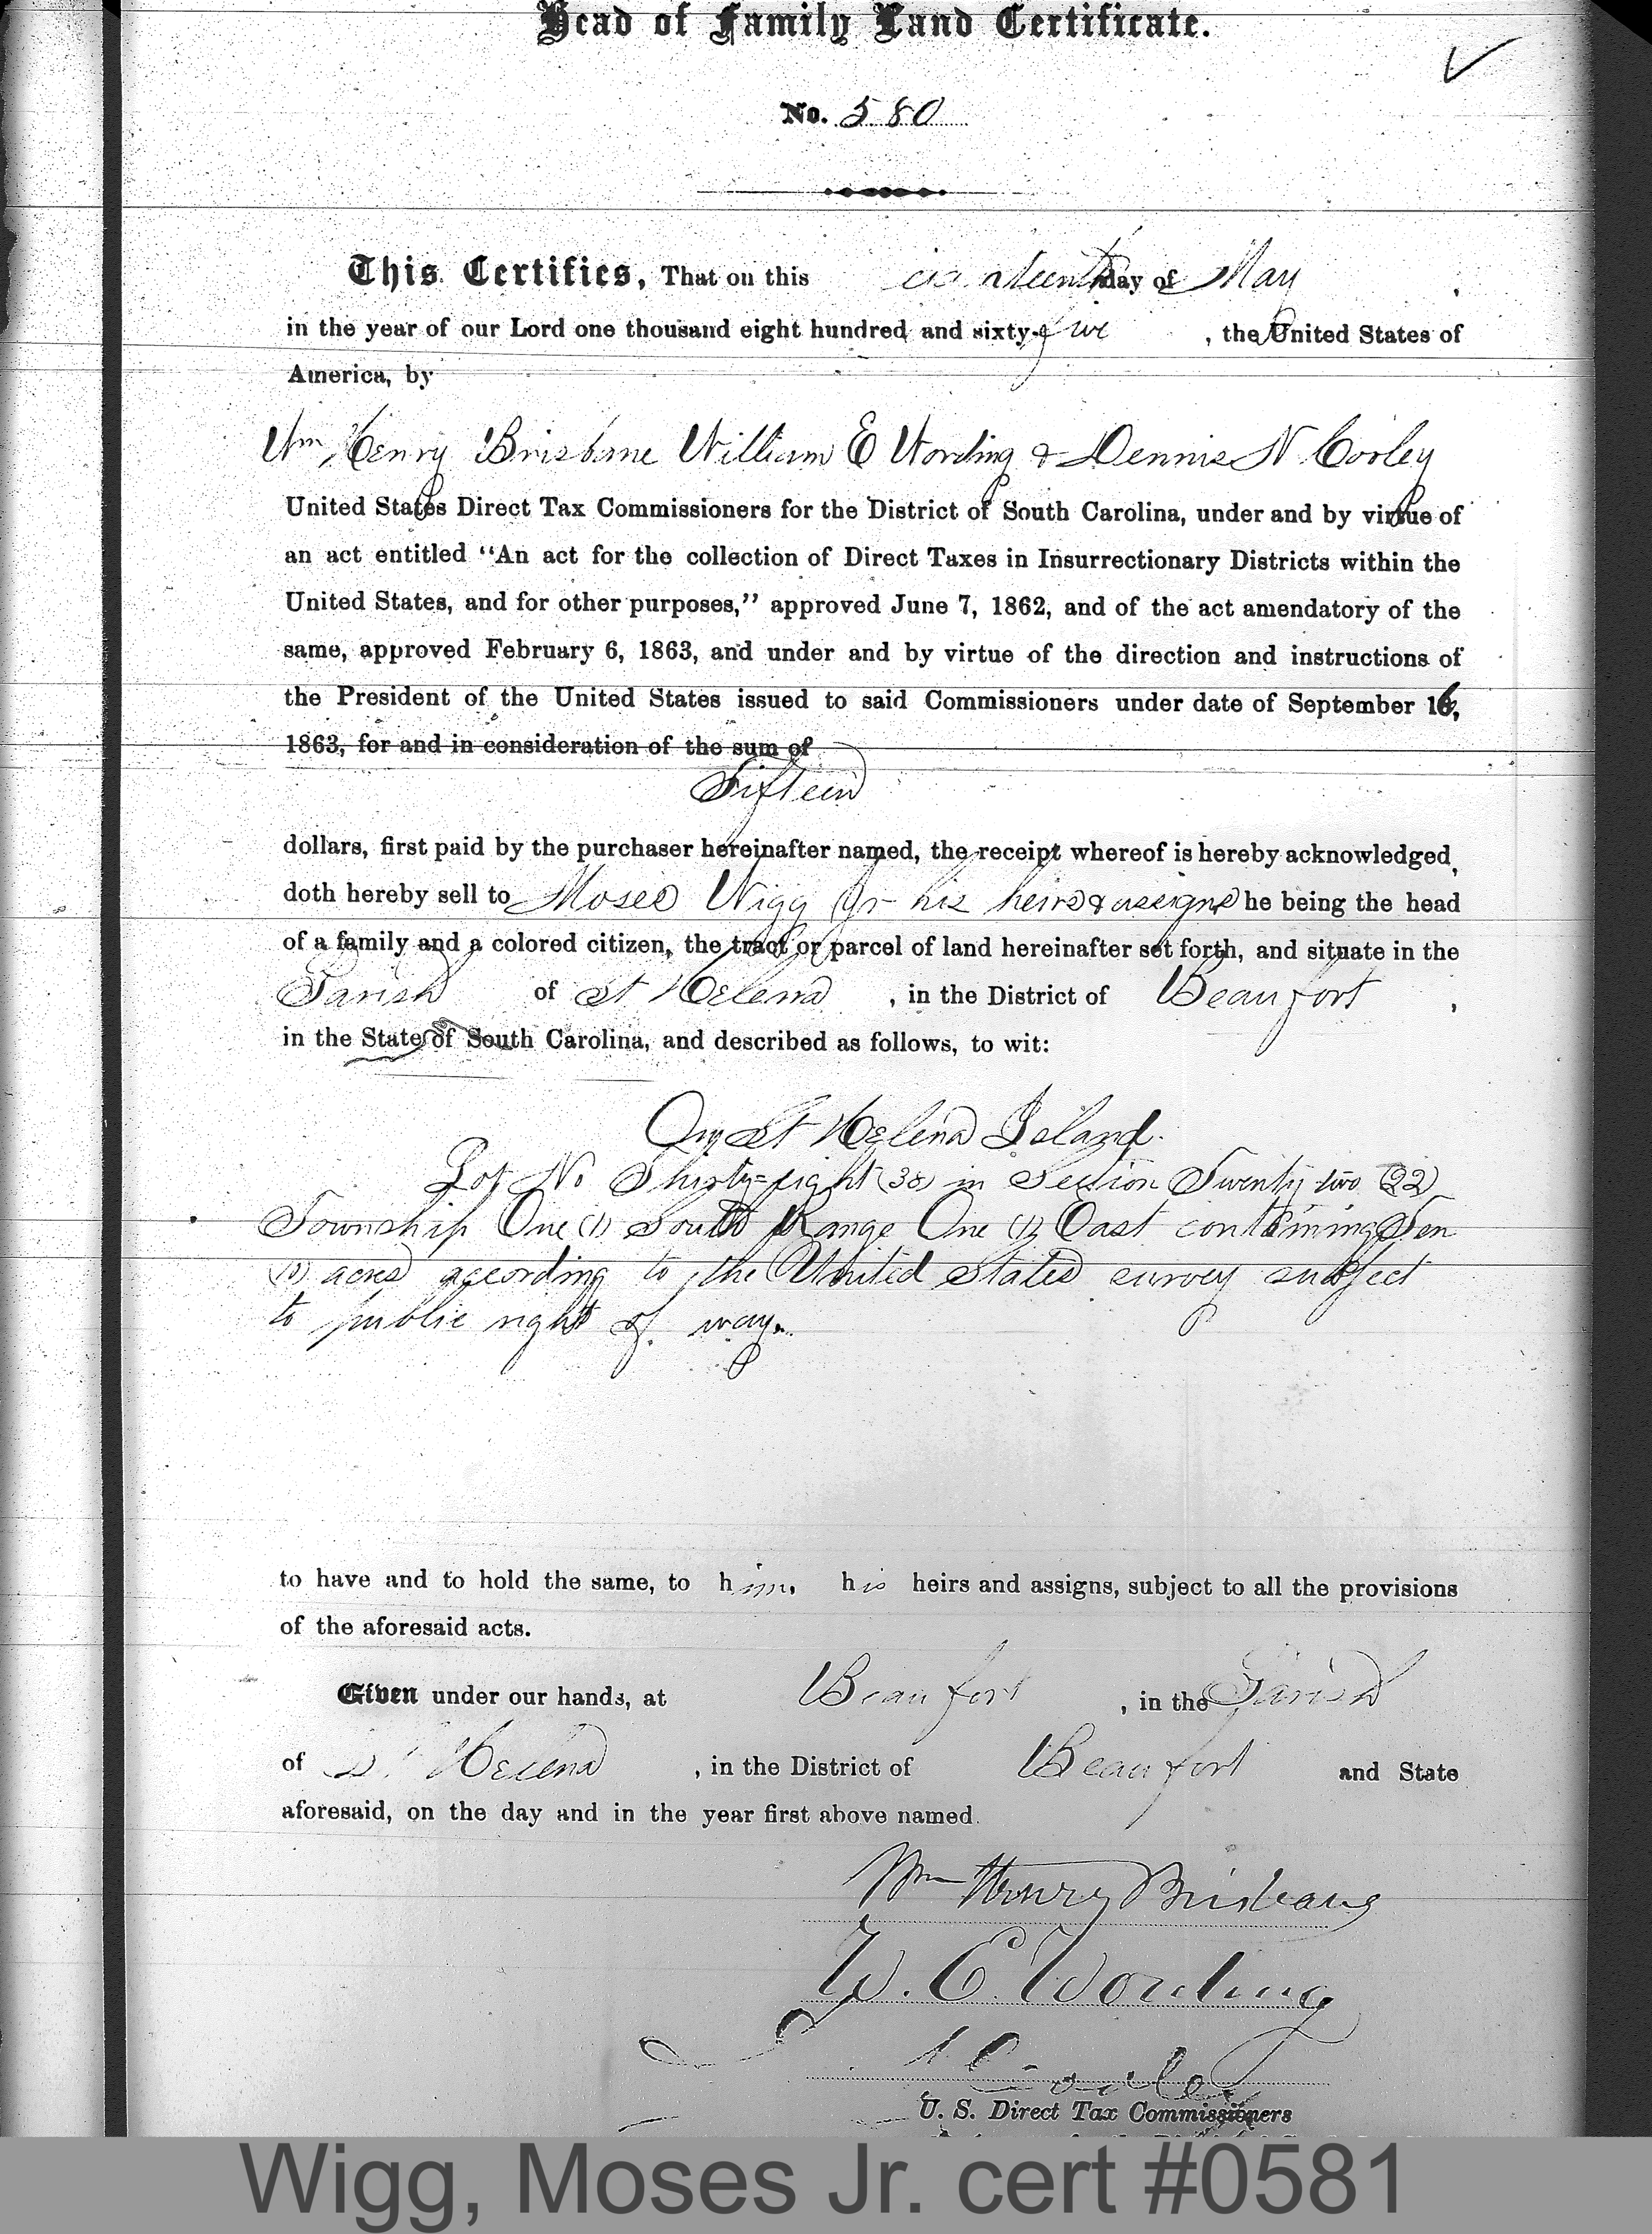 Head of Family Land Certificate.
No. 580
This Certifies, That on this day of May
in the year of our Lord one thousand eight hundred and sixty-five, the United States of
America, by
Wm Henry Brisbane William E Wording & Dennis N. Cooley
United States Direct Tax Commissioners for the District of South Carolina, under and by virtue of
an act entitled "An act for the collection of Direct Taxes in Insurrectionary Districts within the
United States, and for other purposes," approved June 7, 1862, and of the act amendatory of the
same, approved February 6, 1863, and under and by virtue of the direction and instructions of
the President of the United States issued to said Commissioners under date of September 16,
1863, for and in consideration of the sum of
Fifteen
dollars, first paid by the purchaser hereinafter named, the receipt whereof is hereby acknowledged,
doth hereby sell to Moses Wigg Jr his heirs & assigns he being the head
of a family and a colored citizen, the tract or parcel of land hereinafter set forth, and situate in the
Parish of St Helena, in the District of Beaufort,
in the State of South Carolina, and described as follows, to wit:
On St Helena Island.
Lot No Thirty=eight (38) in Section Twenty two (22)
Township One (1) South Range One (1) East containing Ten
(10) acres according to the United States survey subject
to public right of way.
to have and to hold the same, to him, his heirs and assigns, subject to all the provisions
of the aforesaid acts.
Given under our hands, at Beaufort, in the Parish
of St Helena, in the District of Beaufort and State
aforesaid, on the day and in the year first above named.
Wm Henry Brisbane
W. E. Wording
D N Cooley
U. S. Direct Tax Commissioners
Wigg, Moses Jr. cert #0581